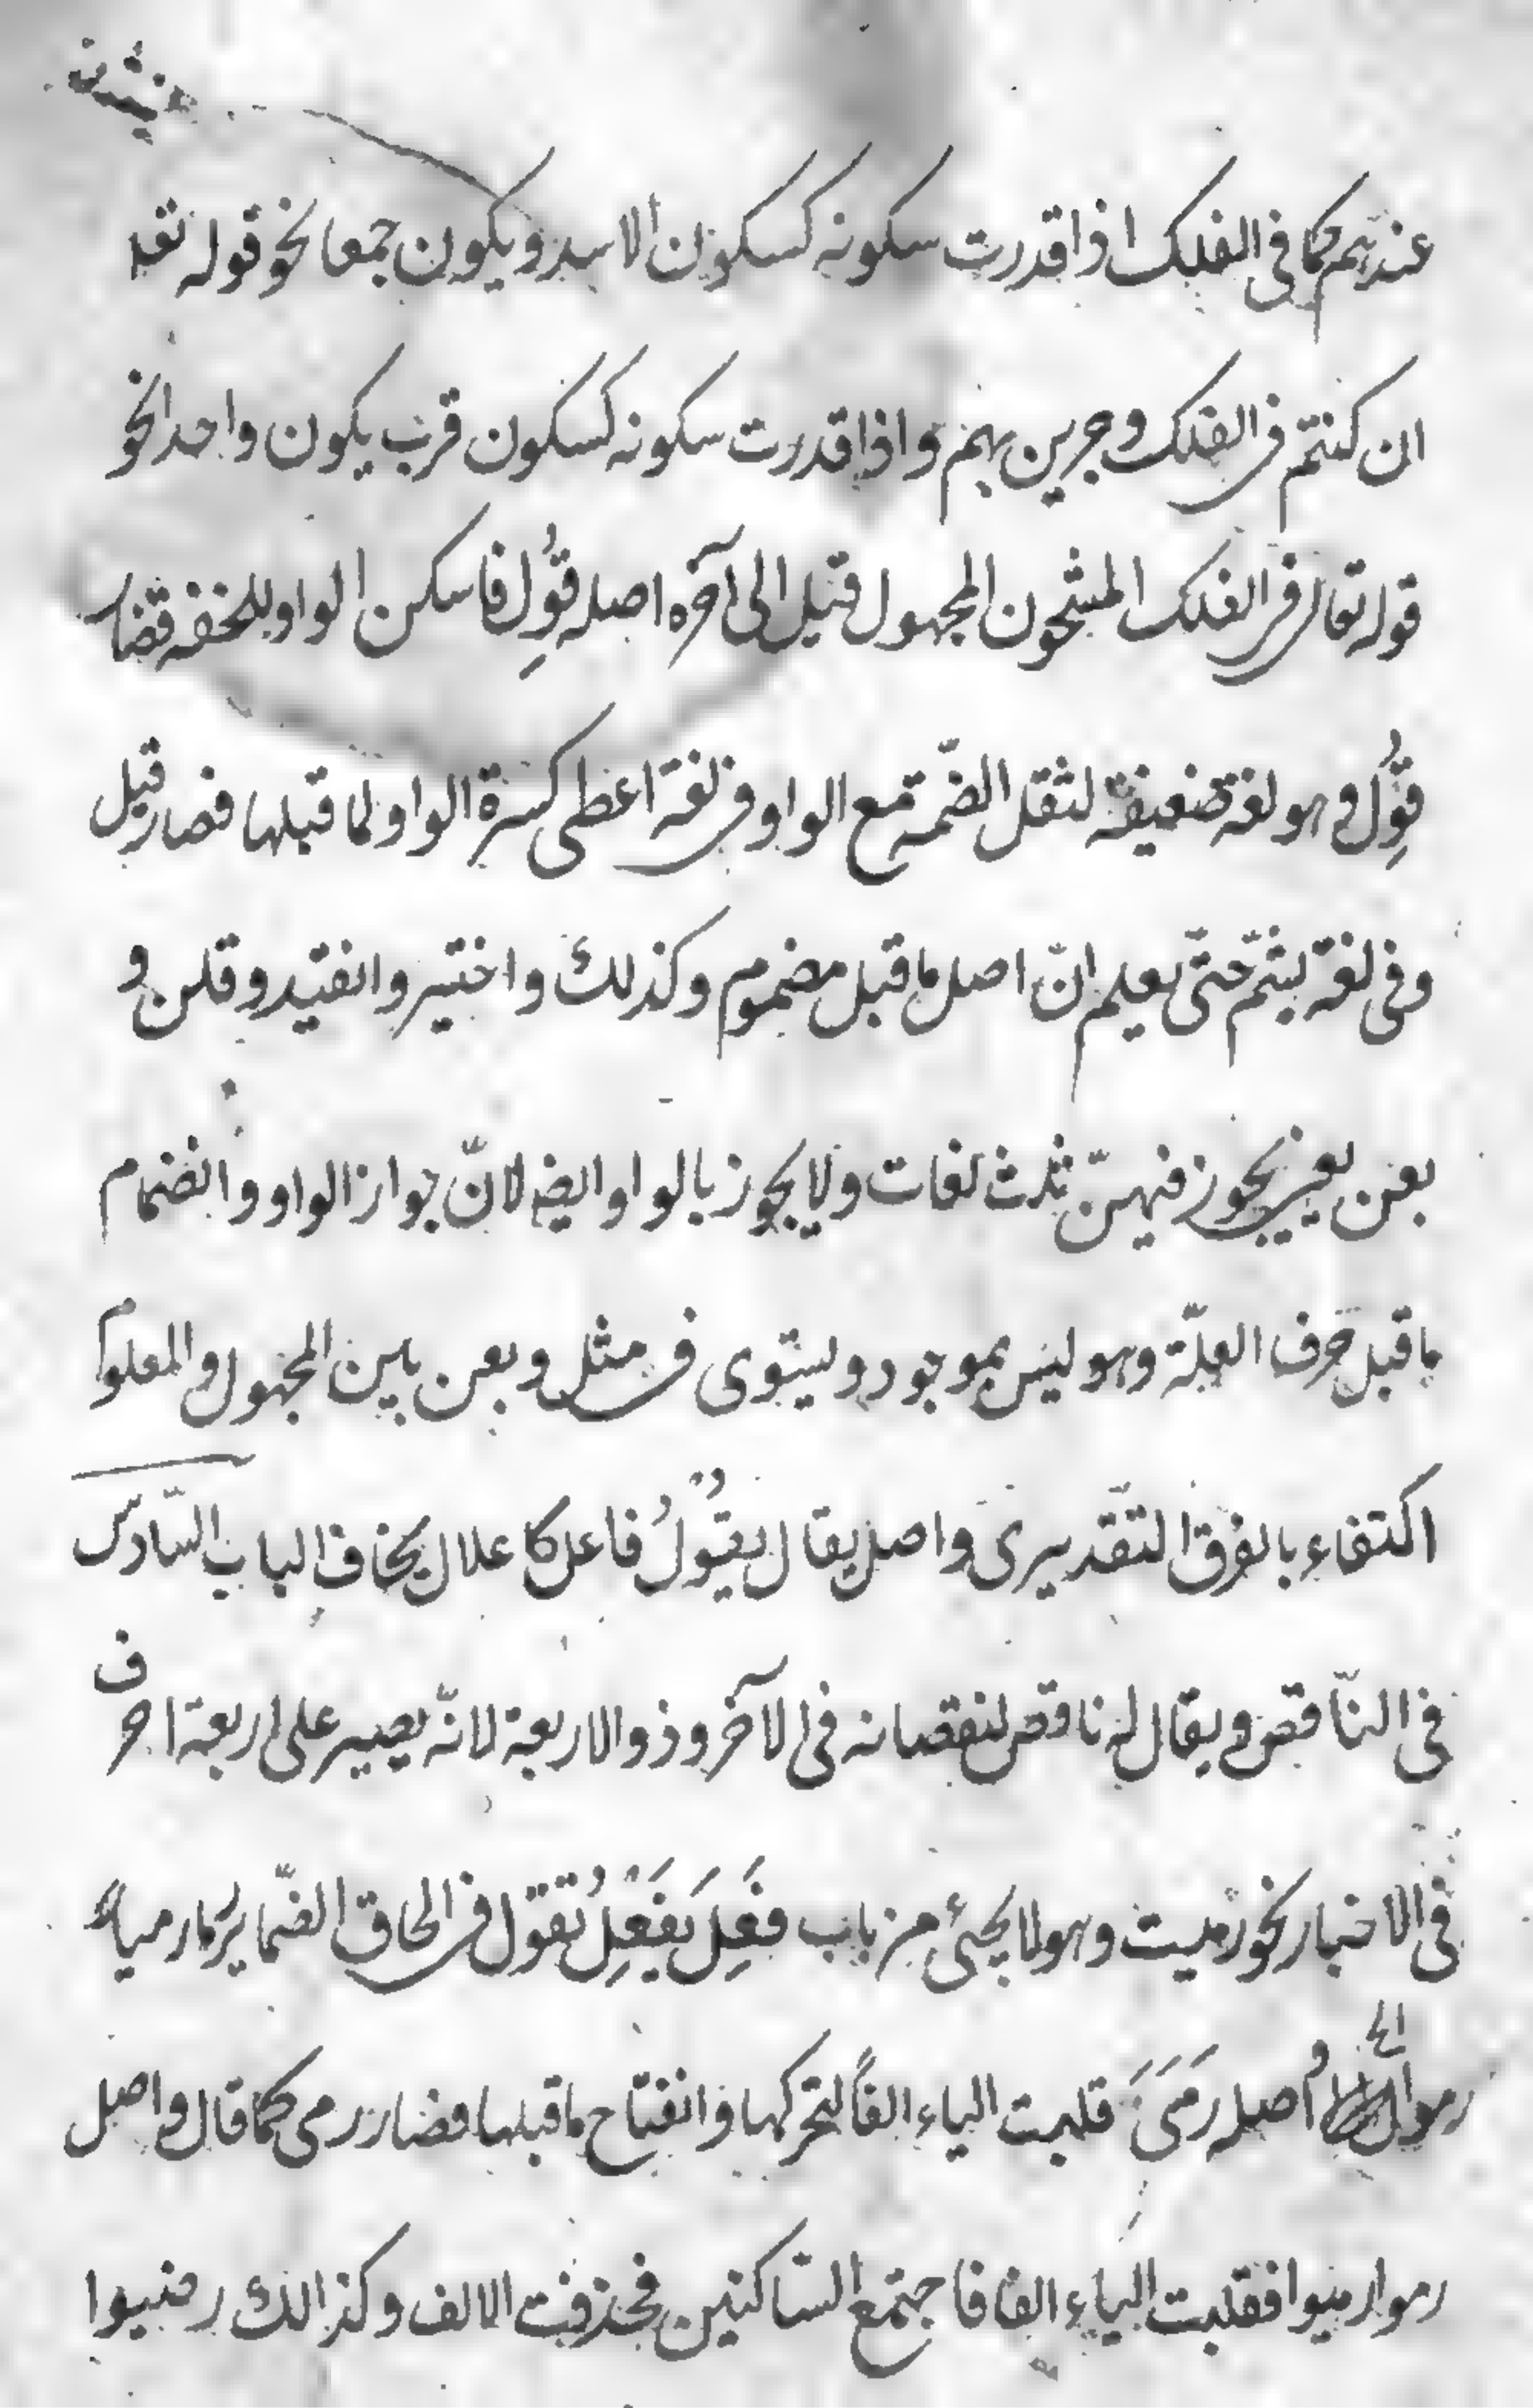 عندهم كما فى الفلك اذا قدرت سكونه كسكون الاسد ويكون جمعا نحو قوله تعا
ان كنتم فى الفلك وجرين بهم واذا قدرت سكونه كسكون قرب يكون واحدا نحو
قوله تعالى فى الفلك المشحون المجهول قيل الى آخره اصله قُوِل فاسكن الواو للخفه فصار
قُوِّل وهو لغة ضعيفة لثقل الضمّة مع الواو وفى لغة اعطى كسرة الواو لما قبلها فصار قيل
وفى لغة يشمّ حتّى يعلم انّ اصل ما قبل مضموم وكذلك واختير وانقيد وقلن و
بعن يعنى يجوز فيهنّ ثلث لغات ولا يجوز بالواو ايضا لانّ جواز الواو وانضمام
ما قبل حرف العلّة وهو ليس بموجود ويستوى فى مثل وبعن بين المجهول والمعلوم
اكتفاء بالفرق التّقديرى واصل يقال يقْوُلُ فاعل كاعلال يخاف الباب السّادس
فى النّاقص ويقال له ناقص لنقصانه فى الآخر وذو الاربعة لانّه يصير على اربعة احرف
فى الاخبار نحو رميت وهو لا يجئ من باب فَعِلَ يَفْعِلُ تقول فى الحاق الضّماير رما رميا
رموا الى اصله رَمَىَ قلبت الياء الفاً لتحركها وانفتاح ما قبلها فصار رمى كما قال واصل
رموا رميوا فقلبت الياء الفا فاجتمع السّاكنين فحذفت الالف وكذالك رضيوا